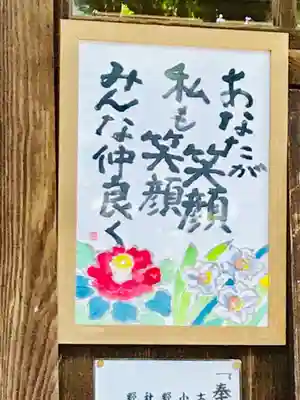 あなたが
笑顔
私も笑顔
みんな仲良く
「奉